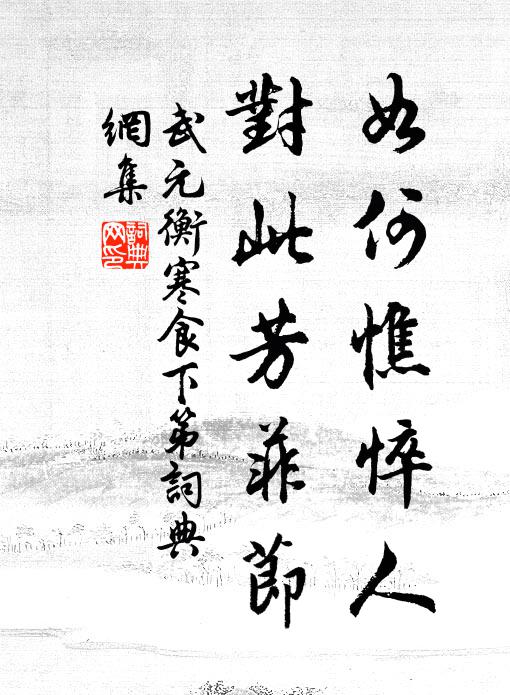 如何憔悴人
對此芳菲節
武元衡寒食下第詞典
網集
詞典
网印